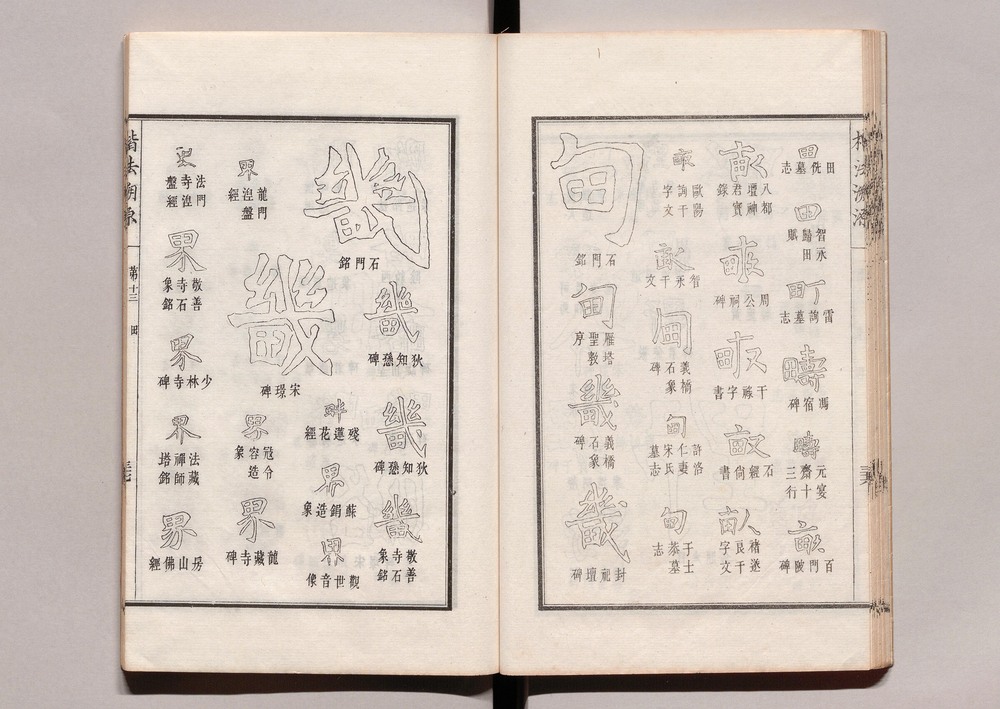 田
田侁墓志
田
智永歸田賦
町
雷詢墓志
疇
馮宿碑
疇
元宴齋十三行
畝
百門陂碑
畝
八都壇神君實錄
畝
周公祠碑
畝
干祿字書
畝
石經尙書
畝
褚遂良千字文
畝
歐陽詢千字文
畝
智永千文
甸
義橋石象碑
甸
許洛仁妻宋氏墓志
甸
于士恭墓志
甸
石門銘
甸
雁塔聖教序
畿
義橋石象碑
畿
封祀壇碑
畿
石門銘
畿
狄知愻碑
畿
狄知愻碑
畿
敬善寺石象銘
畿
宋璟碑
畔
殘蓮花經
界
蘇鋗造象
界
觀世音像
界
龍門涅盤經
界
寇令容造象
界
龍藏寺碑
界
法門寺涅盤經
界
敬善寺石象銘
界
少林寺碑
界
法藏禪師塔銘
界
房山佛經
楷法溯源
第十三
田